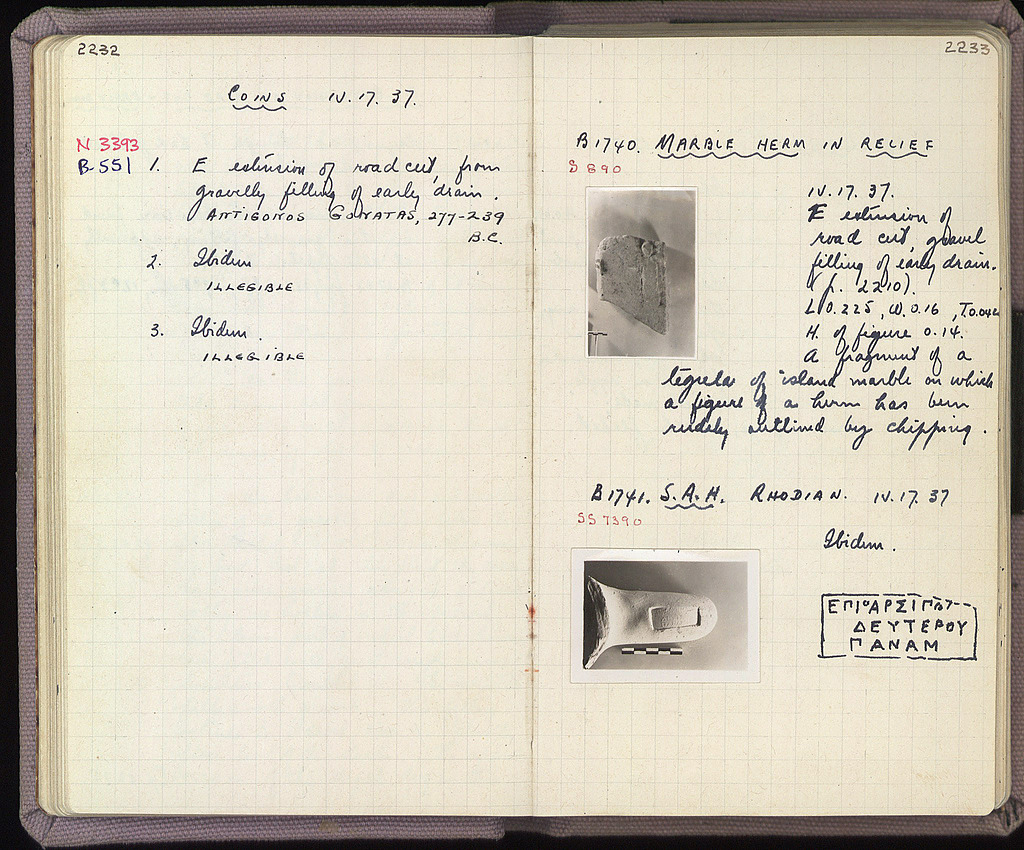 2232
COINS IV. 17. 37.
N 3393
B-551 1. E extension of road cut, from
gravelly filling of early drain.
ANTIGONOS GONATAS, 277-239
B.C.
2. Ibidem
ILLEGIBLE
3. Ibidem.
ILLEGIBLE
2233
B1740. MARBLE HERM IN RELIEF
S 890
IV. 17. 37.
E extension of
road cut, gravel
filling of early drain.
(p. 2210).
L 0.225, W. 0.16, T. 0.042
H. of figure 0.14.
A fragment of a
tegula of island marble on which
a figure of a herm has been
rudely outlined by chipping.
B1741. S.A.H. RHODIAN. IV. 17. 37
SS 7390
Ibidem.
ΔΕΥΤΕΡΟΥ
ΠΑΝΑΜ